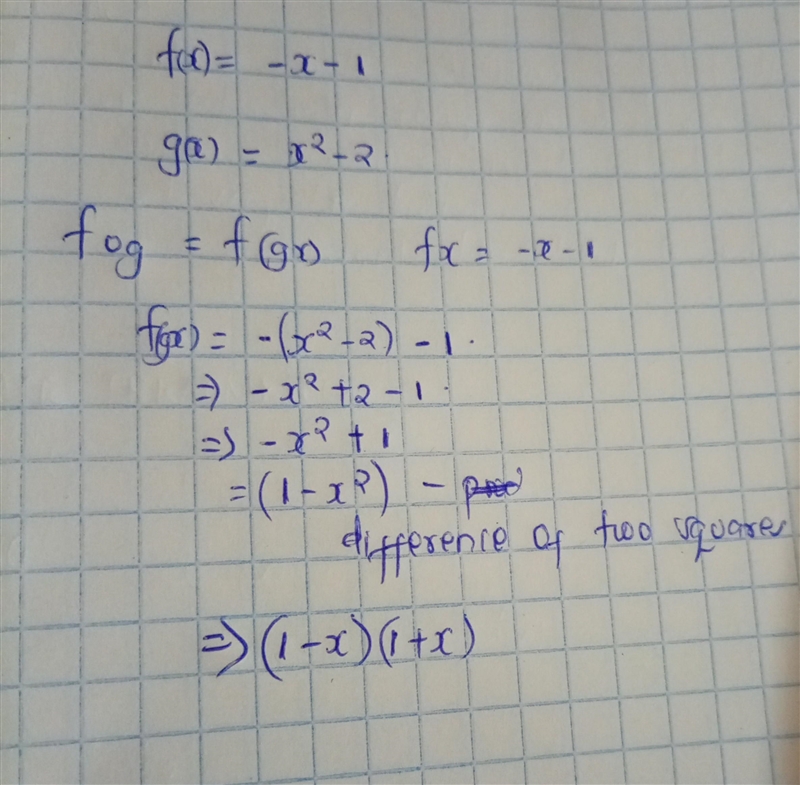 f(x) = -x - 1
g(x) = x² - 2.
fog = f(gx) fx = -x - 1
f(gx) = -(x² - 2) - 1.
⇒ -x² + 2 - 1.
⇒ -x² + 1
= (1 - x²) -
difference of two squares
⇒ (1 - x)(1 + x)